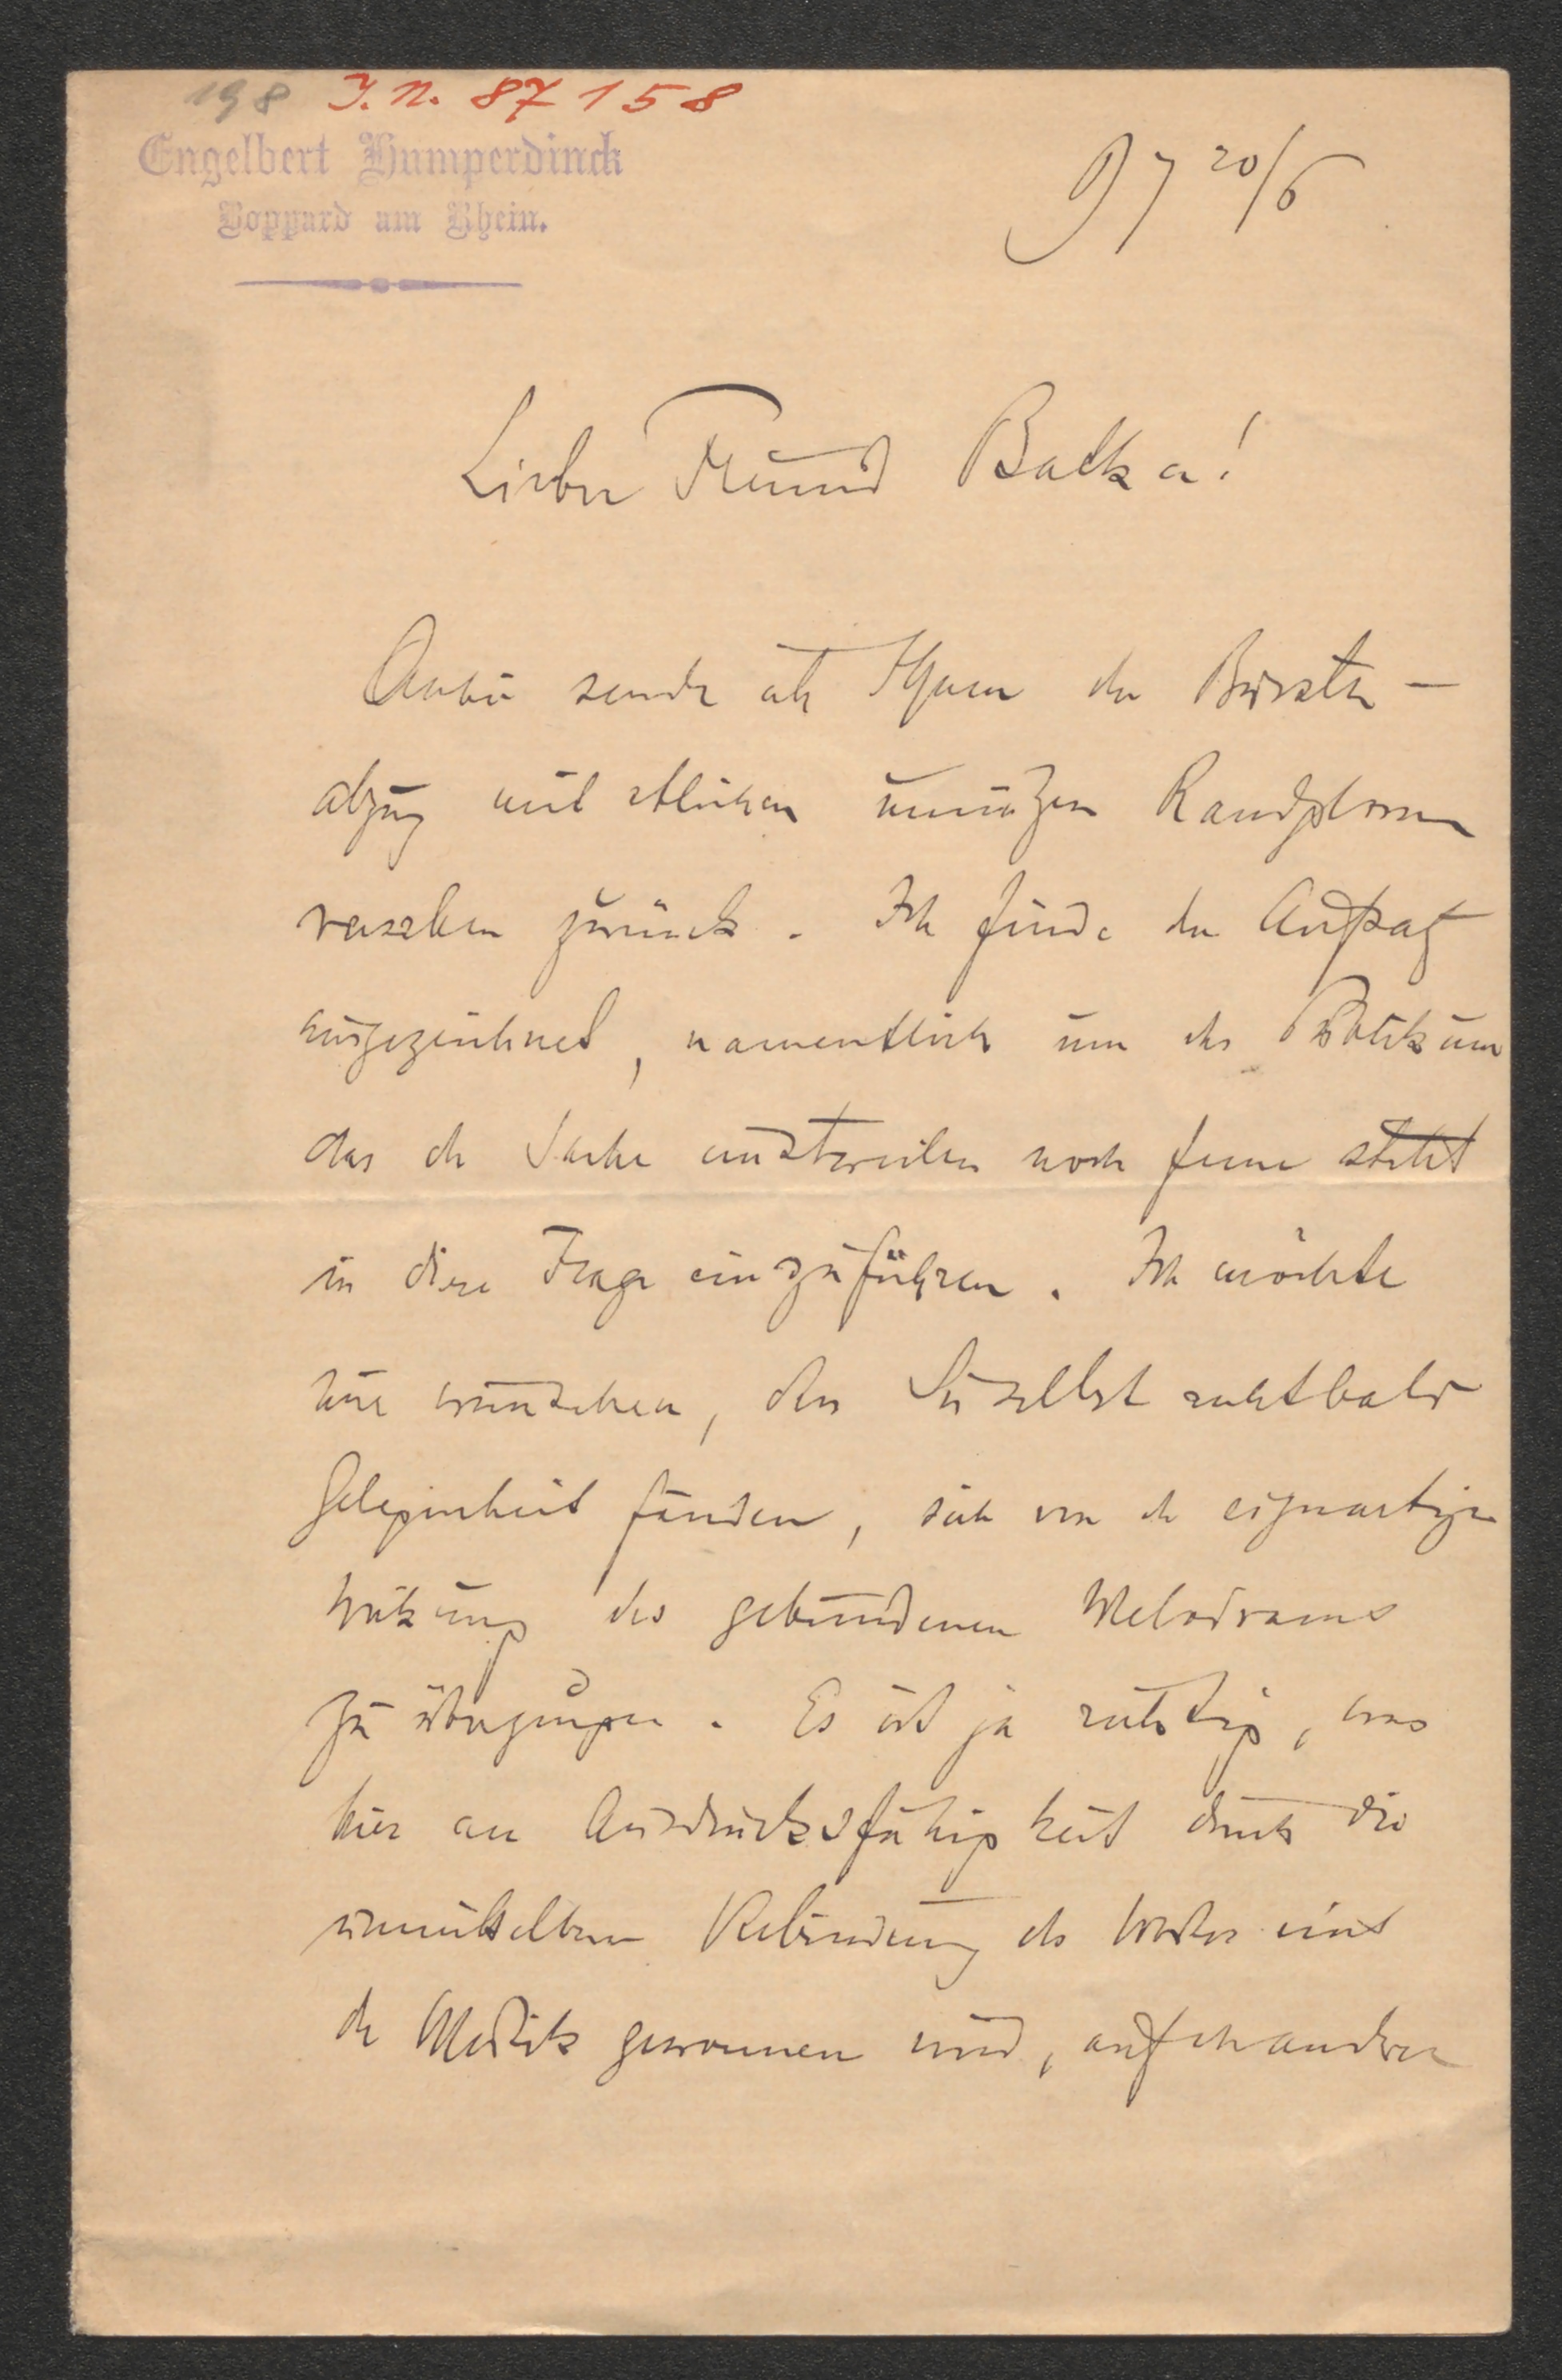 198 I.N. 87158
Engelbert Humperdinck
Boppard am Rhein.
97 20/6
Lieber Freund Batka!
Anbei sende ich Ihnen den Bürsten-
abzug mit etlichen unnützen Randglossen
versehen zurück. Ich finde den Aufsatz
ausgezeichnet, namentlich um das Publikum
das der Sache einstweilen noch ferne steht
in diese Frage einzuführen. Ich möchte
nur wünschen, dass Sie selbst recht bald
Gelegenheit fänden, sich von der eigenartigen
Wirkung des gebundenen Melodrams
zu überzeugen. Es ist ja richtig, was
hier an Ausdrucksfähigkeit durch die
unmittelbare Verbindung des Wortes mit
der Musik gewonnen wird, auf der anderen